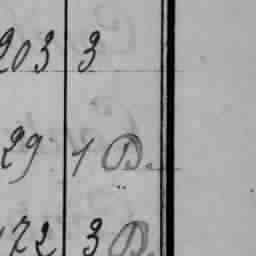 203 3
29 1 D.
172 3 D.